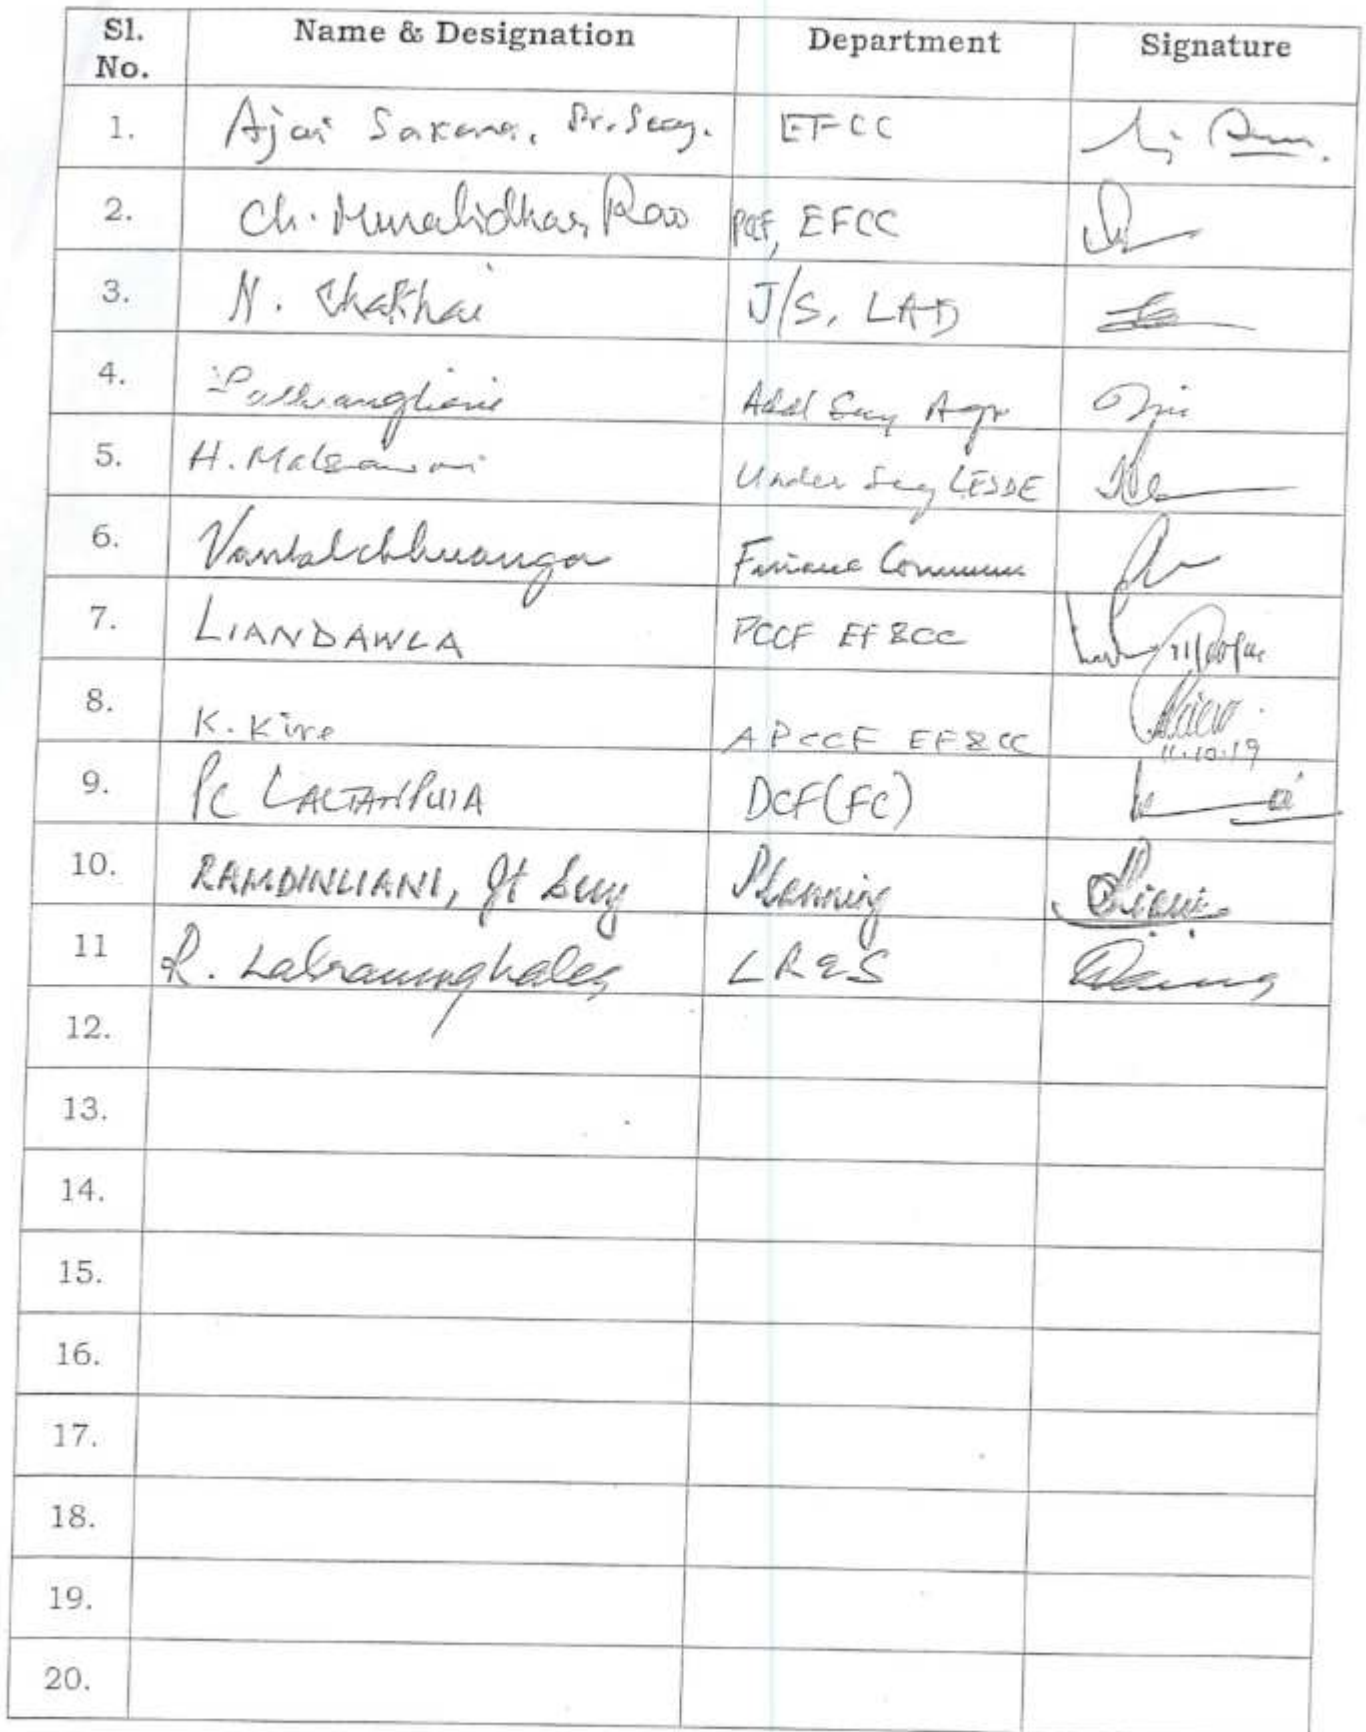 Sl. No. Name & Designation Department Signature
1. Ajai Saxena, Pr. Secy. EFCC
2. Ch. Muralidhar Rao PCCF, EFCC
3. N. Chakhai J/S, LAD
4. Addl Secy Agr
5. H. Under Secy LESDE
6. Vanlalchhuanga Finance Commn
7. LIANDAWLA PCCF EF&CC
8. K. Kire APCCF EF&CC 11.10.19
9. PC LALTANPUIA DCF(FC)
10. RAMDINLIANI, Jt Secy Planning
11 R. LR&S
12.
13.
14.
15.
16.
17.
18.
19.
20.